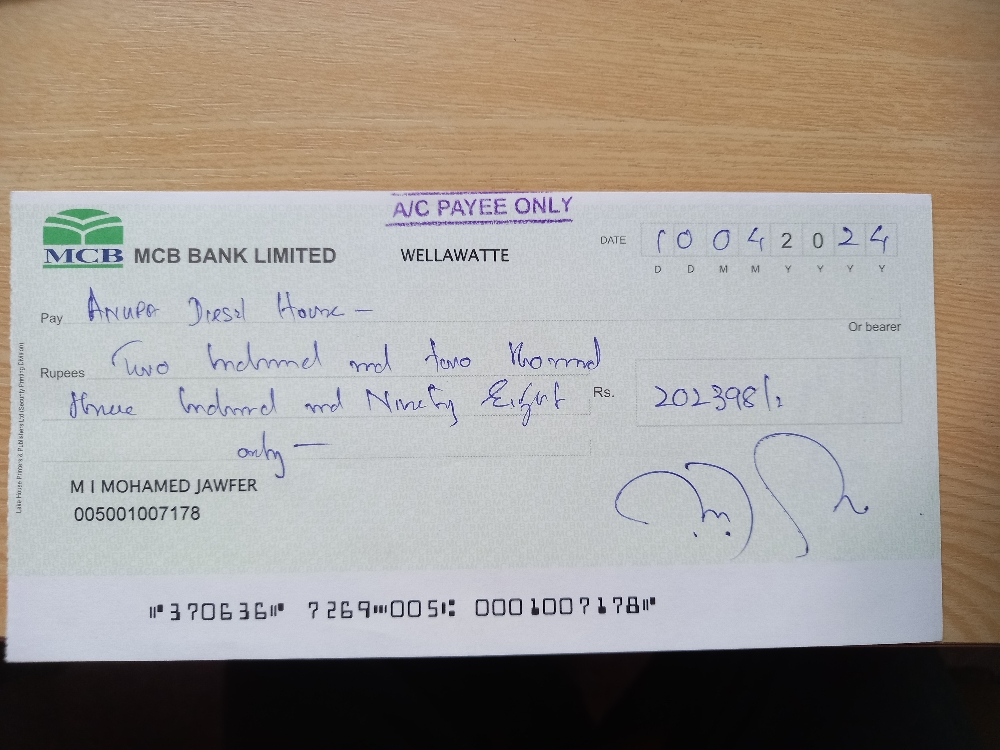 A/C PAYEE ONLY
MCB MCB BANK LIMITED
WELLAWATTE
DATE 10 04 2024
D D M M Y Y Y Y
Pay Anupa Diesel House —
Or bearer
Rupees Two hundred and two thousand
three hundred and Ninety Eight
Rs. 202398/=
only —
M I MOHAMED JAWFER
005001007178
Lake House Printers & Publishers Ltd (Security Printing Division)
⑈370636⑈ 7269⑉005⑆ 0001007178⑈